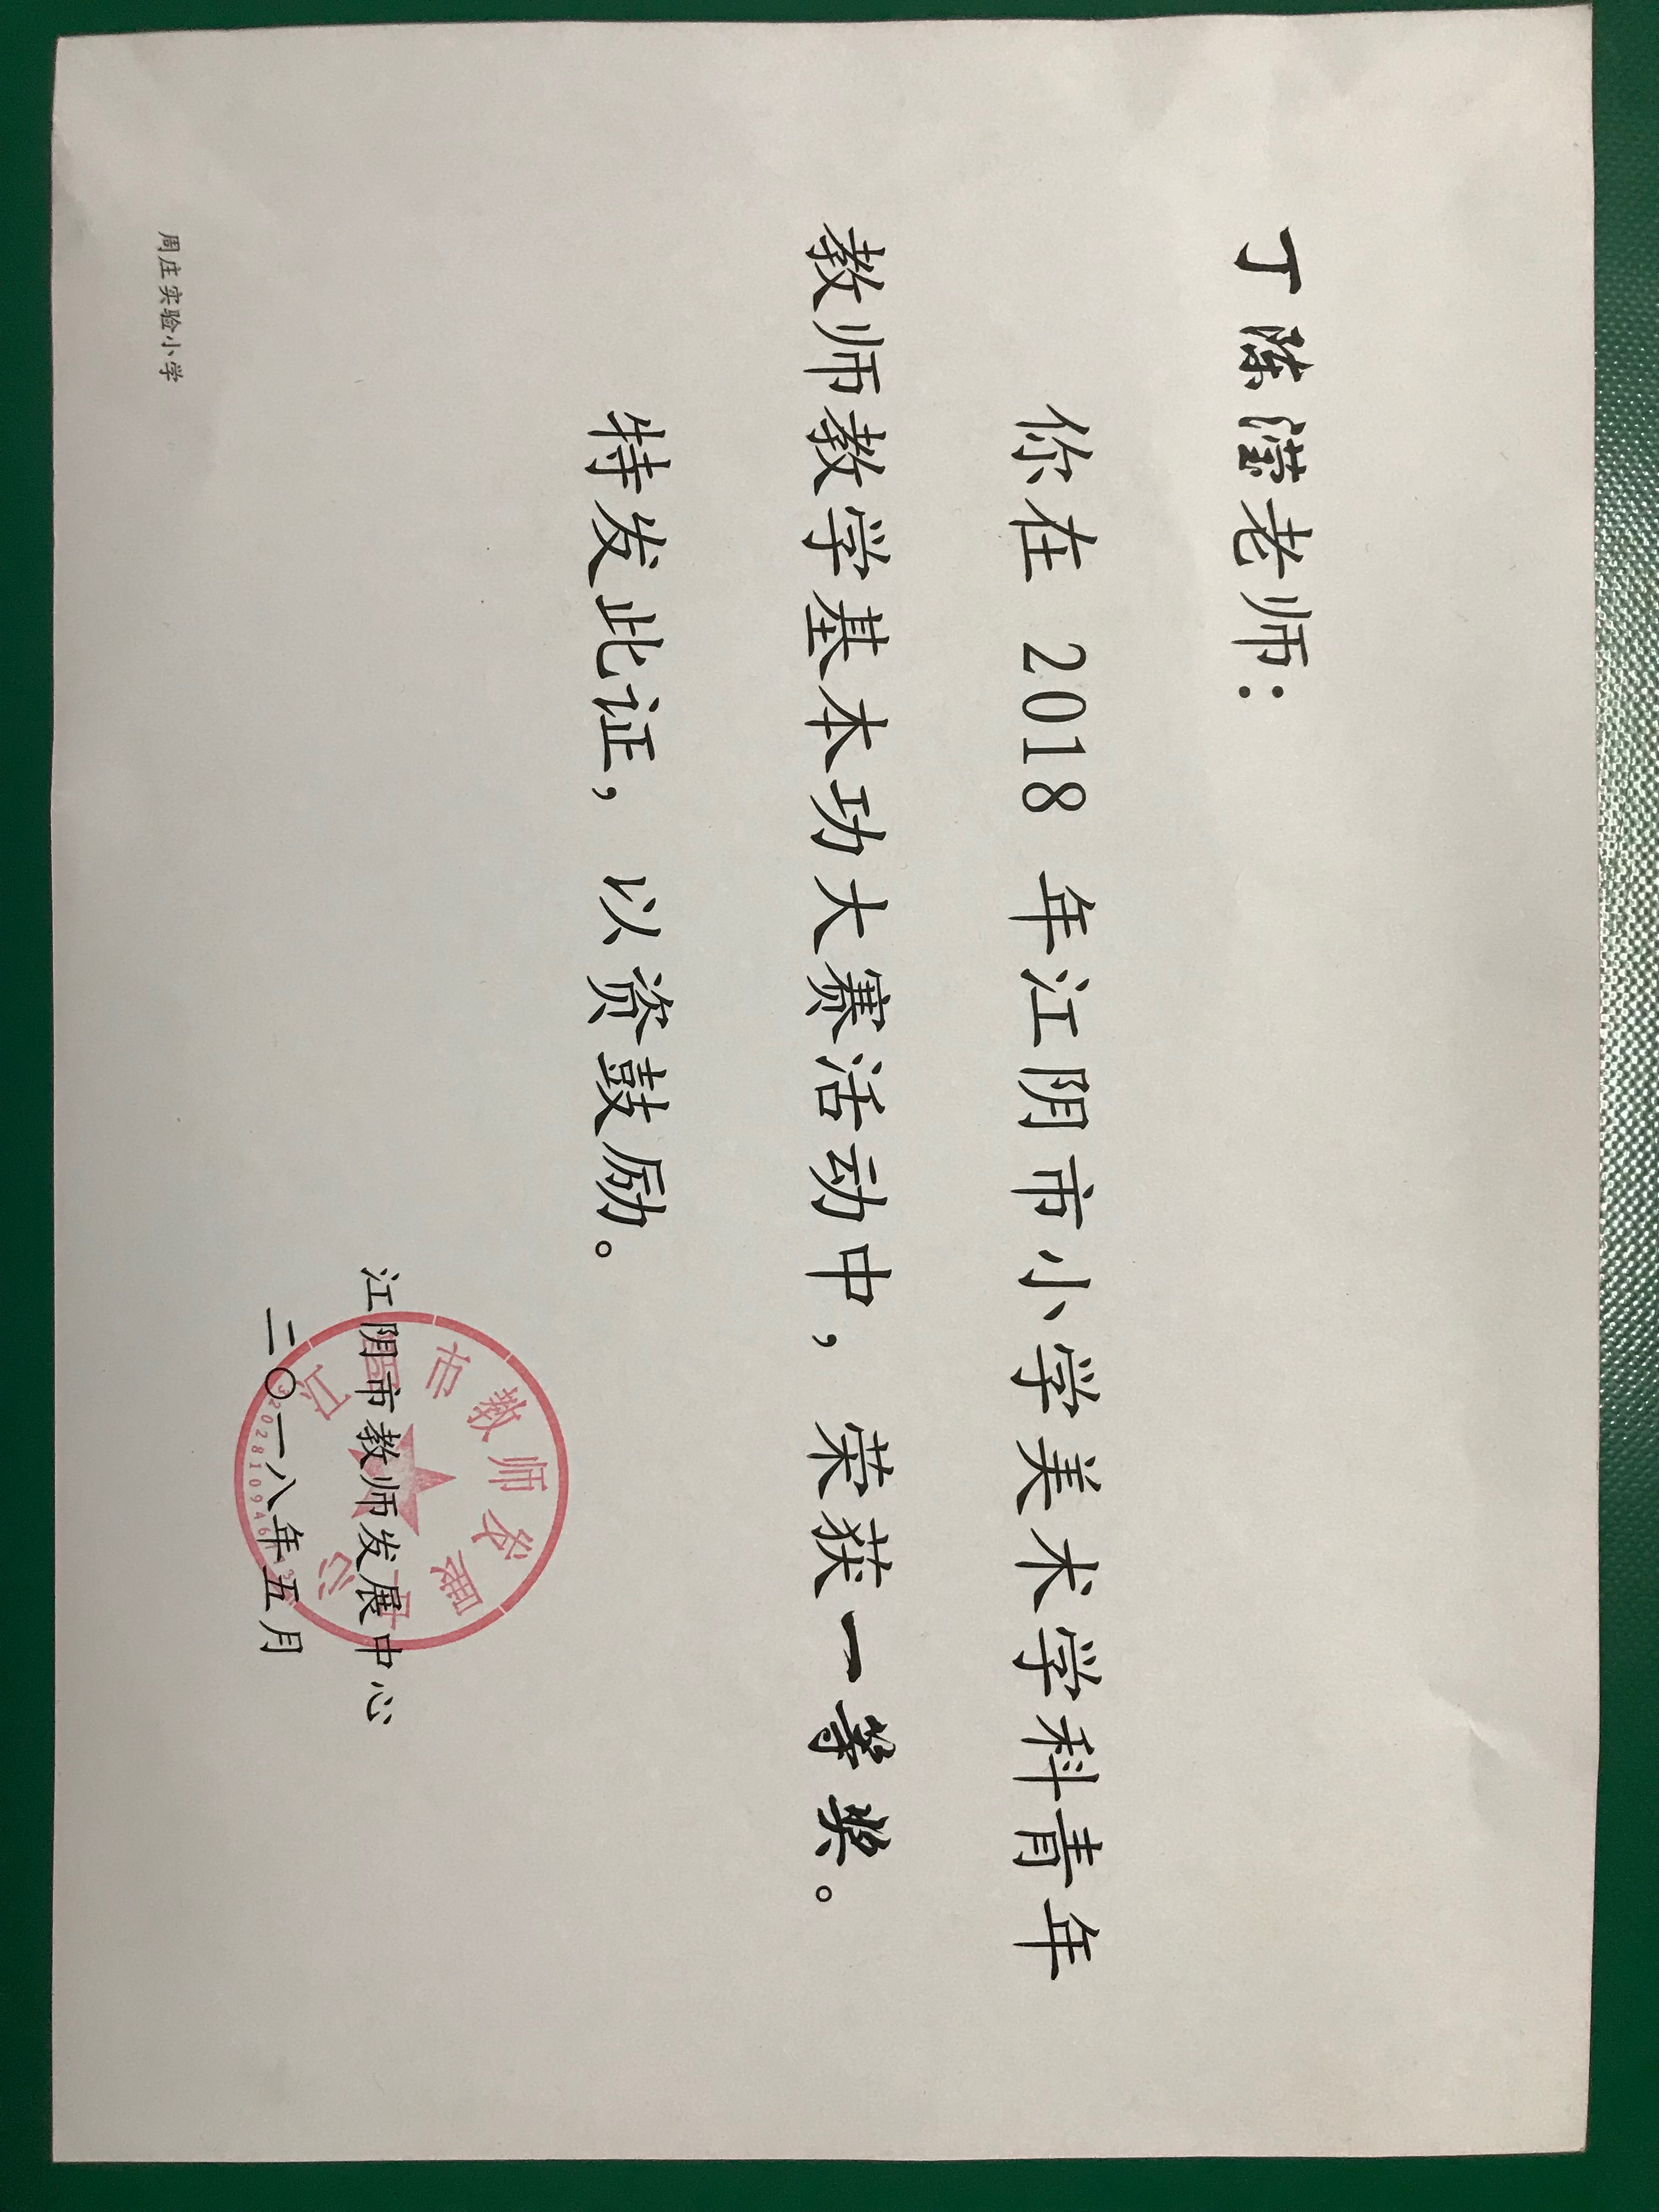 丁陈滢老师：
你在 2018 年江阴市小学美术学科青年
教师教学基本功大赛活动中，荣获一等奖。
特发此证，以资鼓励。
江阴市教师发展中心
二〇一八年五月
江阴市教师发展中心
周庄实验小学